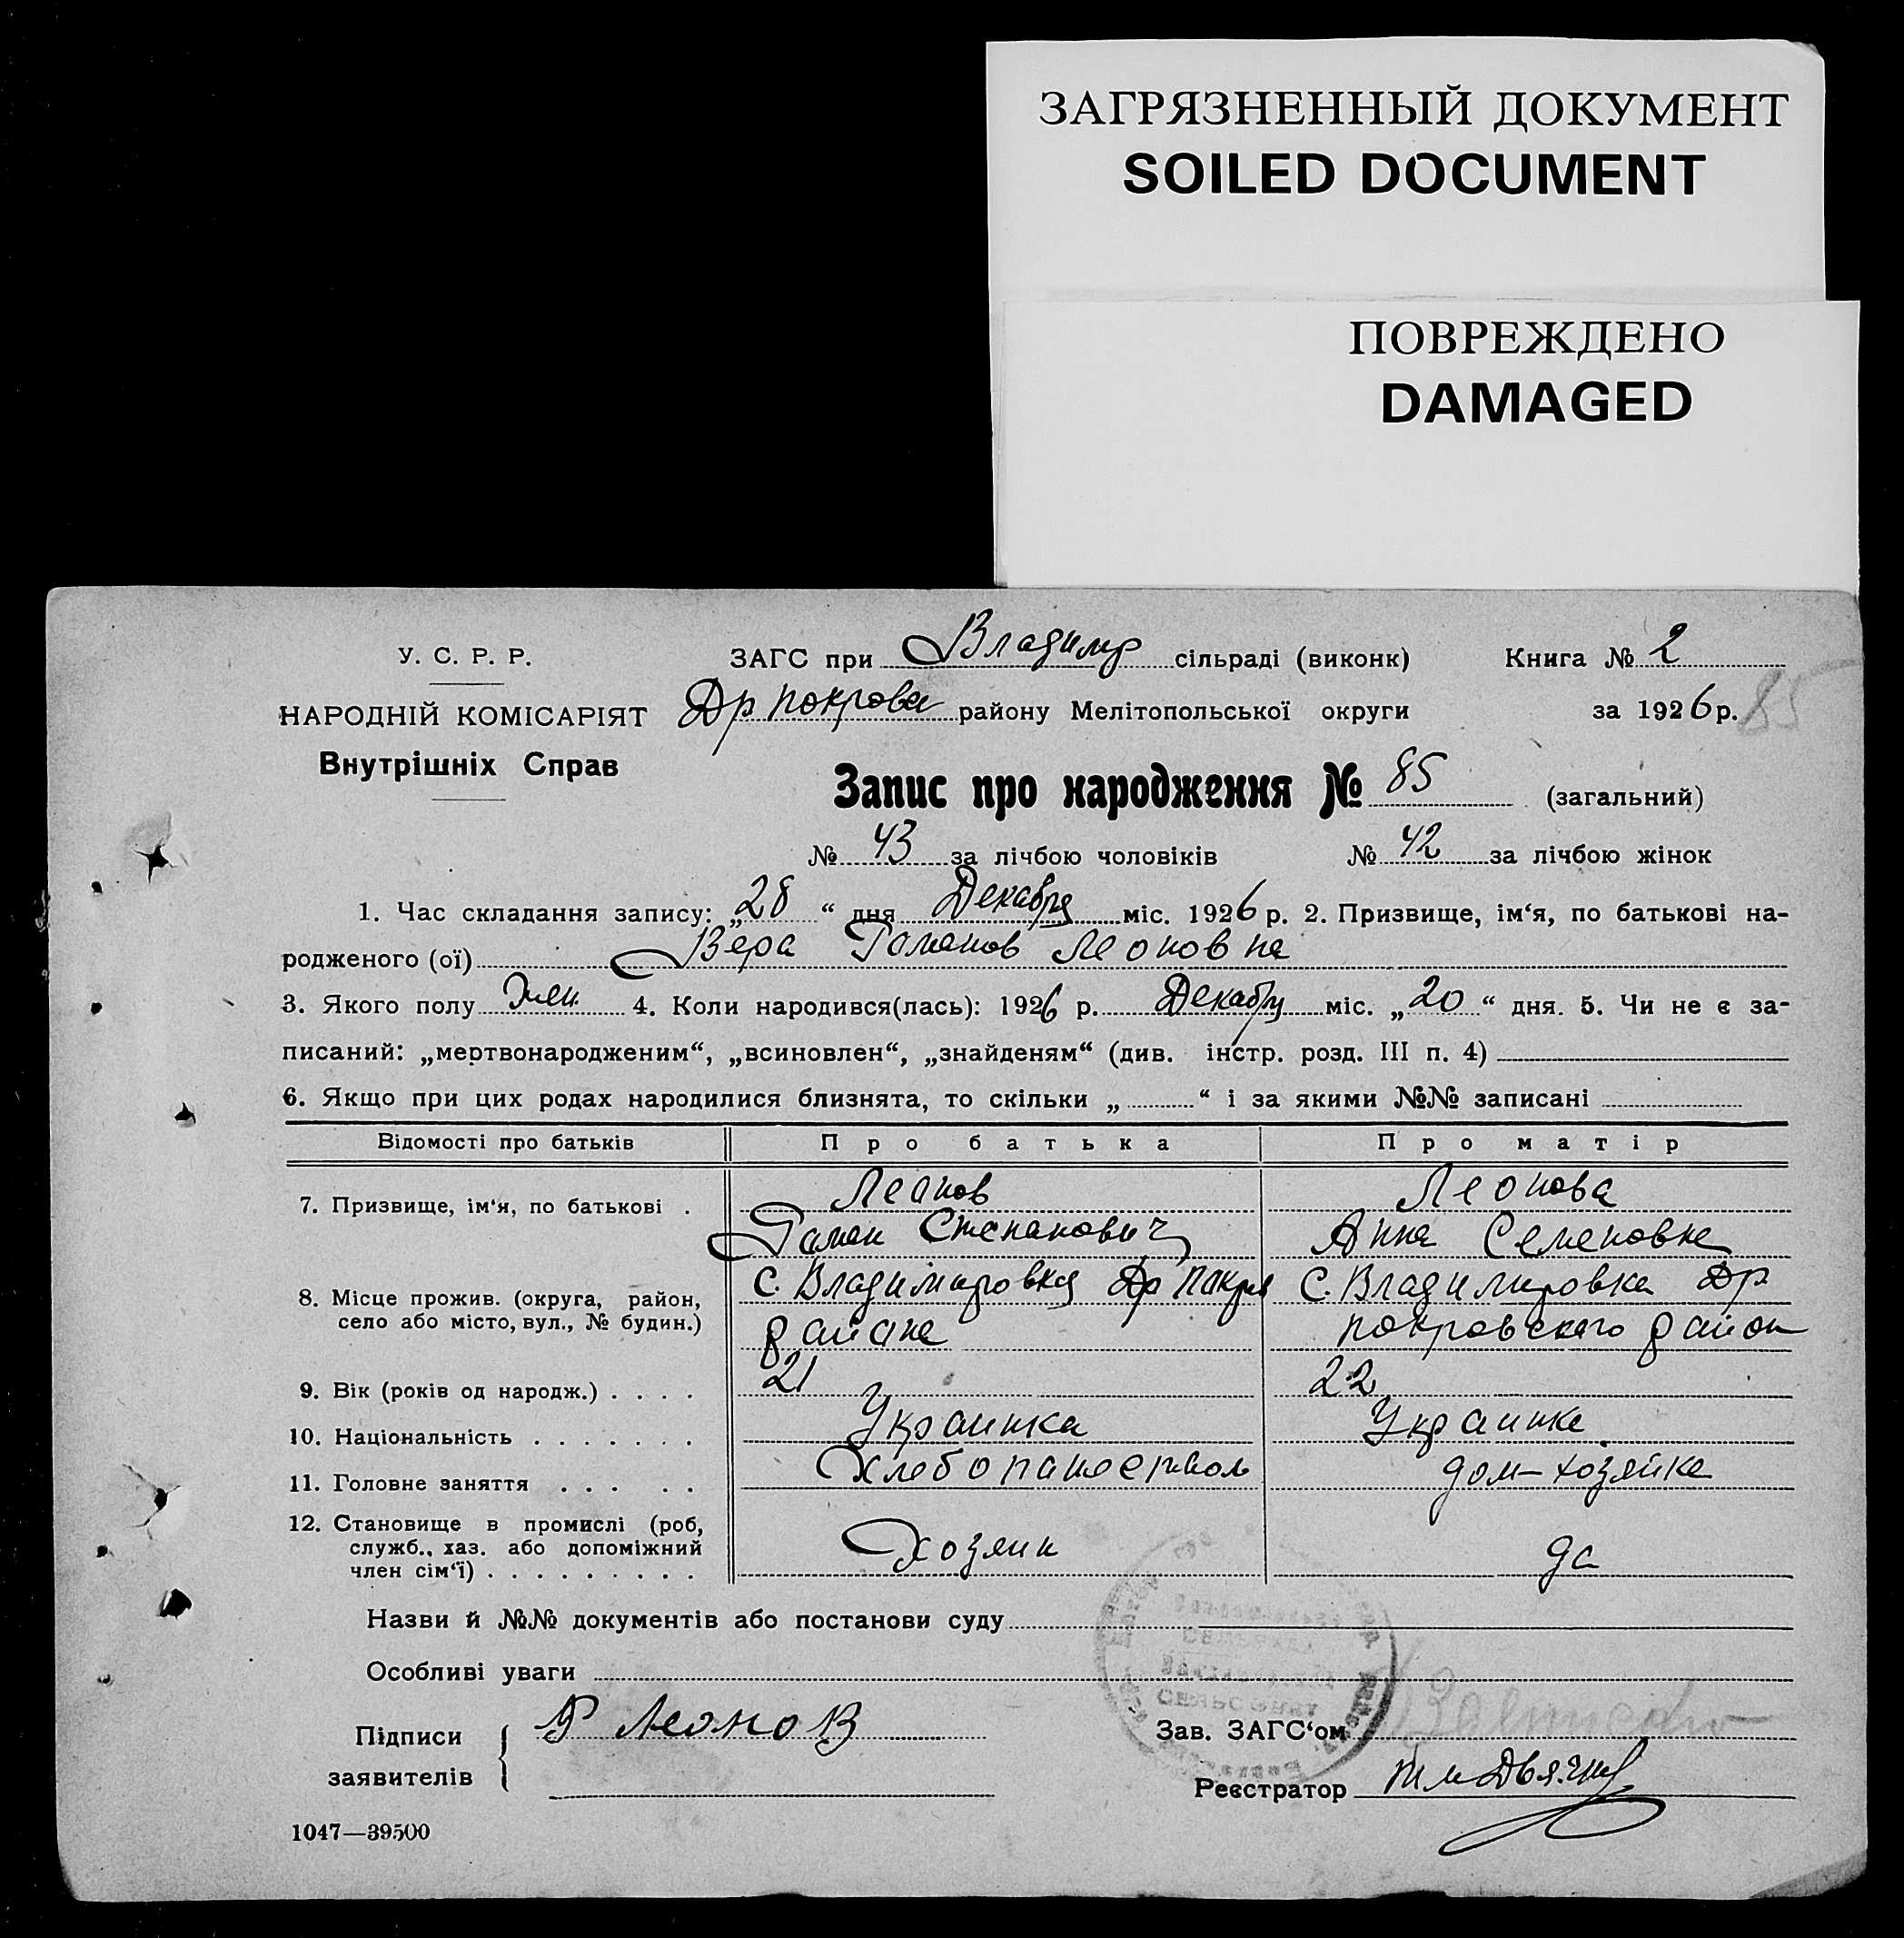 ЗАГРЯЗНЕННЫЙ ДОКУМЕНТ
SOILED DOCUMENT
ПОВРЕЖДЕНО
DAMAGED
У. С. Р. Р.
НАРОДНІЙ КОМІСАРІЯТ
Внутрішніх Справ
ЗАГС при Владимир сільраді (виконк) Книга № 2
Др покрова району Мелітопольської округи за 1926 р. 85
Запис про народження № 85 (загальний)
№ 43 за лічбою чоловіків № 42 за лічбою жінок
1. Час складання запису: „28“ дня Декабря міс. 1926 р. 2. Призвище, ім‘я, по батькові на-
родженого (ої) Вера Романов Леоновна
3. Якого полу жен. 4. Коли народився(лась): 1926 р. Декабря міс. „20“ дня. 5. Чи не є за-
писаний: „мертвонародженим“, „всиновлен“, „знайденям“ (див. інстр. розд. III п. 4)
6. Якщо при цих родах народилися близнята, то скільки „ “ і за якими №№ записані
Відомості про батьків Про батька Про матір
7. Призвище, ім‘я, по батькові . Леонов Леонова
Роман Степанович Анна Семеновна
8. Місце прожив. (округа, район, С. Владимировка Др Покров С. Владимировка Др
село або місто, вул., № будин.) района покровского район
9. Вік (років од народж.) . . . . 21 22
10. Національність . . . . . . . Украинка Украинка
11. Головне заняття . . . . . дом-хозяйка
12. Становище в промислі (роб,
служб., хаз. або допоміжний Хозяин да
член сім‘ї) . . . . . . . . .
Назви й №№ документів або постанови суду
Особливі уваги
Підписи Р Леонов Зав. ЗАГС‘ом
заявителів Реєстратор
1047—39500